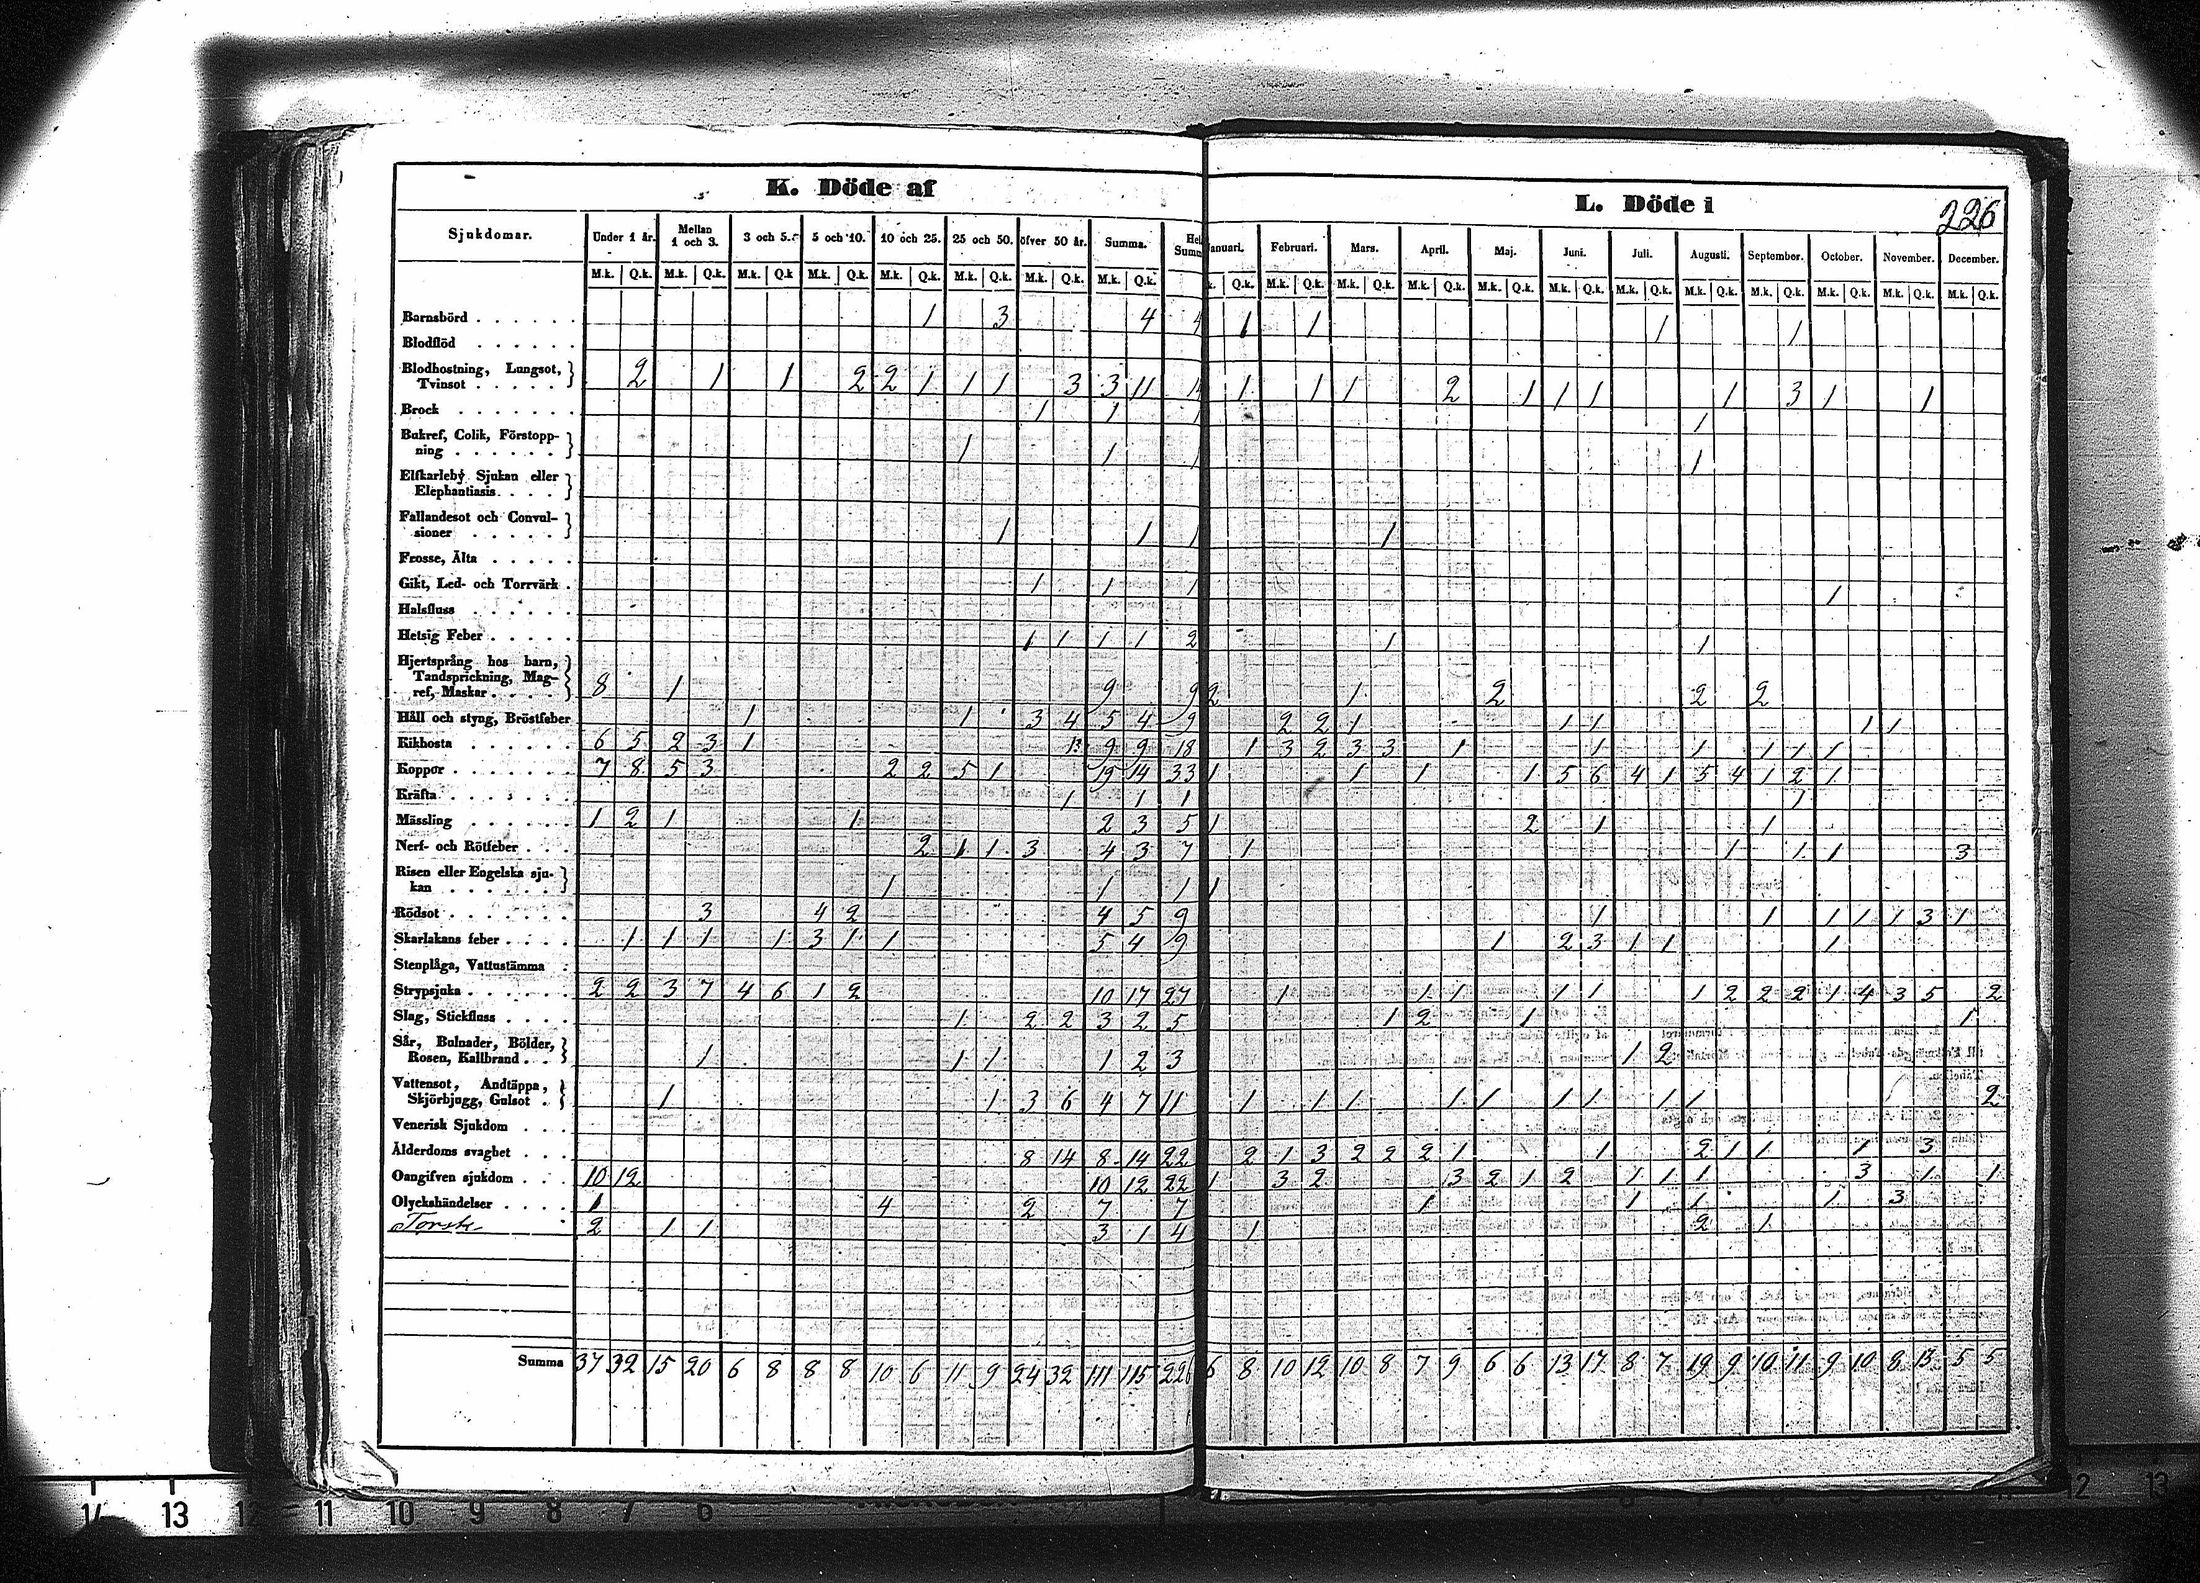 K. Döde af
L. Döde i
226
Sjukdomar. Under 1 år. Mellan 1 och 3. 3 och 5. 5 och 10. 10 och 25. 25 och 50. öfver 50 år. Summa. Hel Summ anuari. Februari. Mars. April. Maj. Juni. Juli. Augusti. September. October. November. December.
M.k. Q.k. M.k. Q.k. M.k. Q.k M.k. Q.k. M.k. Q.k. M.k. Q.k. M.k. Q.k. M.k. Q.k. k. Q.k. M.k. Q.k. M.k. Q.k. M.k. Q.k. M.k. Q.k. M.k. Q.k. M.k. Q.k. M.k. Q.k. M.k. Q.k. M.k. Q.k. M.k. Q.k. M.k. Q.k.
Barnsbörd . . . . . . 1 3 4 4 1 1 1 1
Blodflöd . . . . . .
Blodhostning, Lungsot,
Tvinsot . . . . . 2 1 1 2 2 1 1 1 3 3 11 14 1 1 1 2 1 1 1 1 3 1 1
Brock . . . . . . . 1 1 1 1
Bukref, Colik, Förstopp-
ning . . . . . . 1 1 1 1
Elfkarleby Sjukan eller
Elephantiasis. . . .
Fallandesot och Convul-
sioner . . . . . 1 1 1 1
Frosse, Älta . . . . .
Gikt, Led- och Torrvärk . 1 1 1 1
Halsfluss . . . . . .
Hetsig Feber . . . . . 1 1 1 1 2 1 1
Hjertsprång hos barn,
Tandsprickning, Mag-
ref, Maskar . . . . 8 1 9 9 2 1 2 2 2
Håll och styng, Bröstfeber 1 1 3 4 5 4 9 2 2 1 1 1 1 1
Kikhosta . . . . . . 6 5 2 3 1 1 9 9 18 1 3 2 3 3 1 1 1 1 1 1
Koppor . . . . . . . 7 8 5 3 2 2 5 1 19 14 33 1 1 1 1 5 6 4 1 5 4 1 2 1
Kräfta . . . . . . . 1 1 1 1
Mässling . . . . . . 1 2 1 1 2 3 5 1 2 1 1
Nerf- och Rötfeber . . . 2 1 1 3 4 3 7 1 1 1 1 3
Risen eller Engelska sju-
kan . . . . . . 1 1 1 1
Rödsot . . . . . . . 3 4 2 4 5 9 1 1 1 1 1 3 1
Skarlakans feber . . . . 1 1 1 1 3 1 1 5 4 9 1 2 3 1 1 1
Stenplåga, Vattustämma .
Strypsjuka . . . . . . 2 2 3 7 4 6 1 2 10 17 27 1 1 1 1 1 1 2 2 2 1 4 3 5 2
Slag, Stickfluss . . . . 1 2 2 3 2 5 1 2 1 1
Sår, Bulnader, Bölder,
Rosen, Kallbrand . . 1 1 1 1 2 3 1 2
Vattensot, Andtäppa,
Skjörbjugg, Gulsot . 1 1 3 6 4 7 11 1 1 1 1 1 1 1 1 1 2
Venerisk Sjukdom . . .
Ålderdoms svaghet . . . 8 14 8 14 22 2 1 3 2 2 2 1 1 2 1 1 1 3
Oangifven sjukdom . . . 10 12 10 12 22 1 3 2 3 2 1 2 1 1 1 3 1 1
Olyckshändelser . . . . 1 4 2 7 7 1 1 1 1 3
Torsk 2 1 1 3 1 4 1 2 1
Summa 37 32 15 20 6 8 8 8 10 6 11 9 24 32 111 115 226 6 8 10 12 10 8 7 9 6 6 13 17 8 7 19 9 10 11 9 10 8 13 5 5
14 13 12 11 10 9 8 7 6 12 13